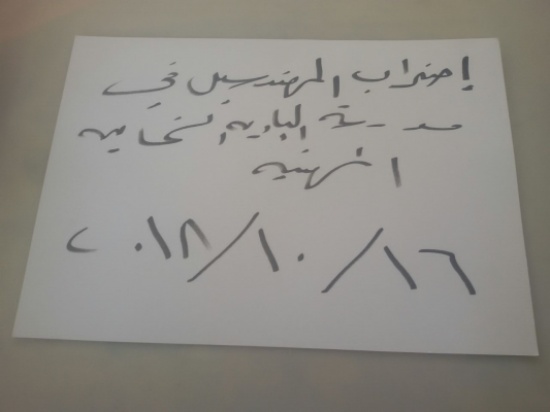 إضراب المهندسين في
مدرسة البادية الشمالية
المهنية
١٦/١٠/٢٠١٨